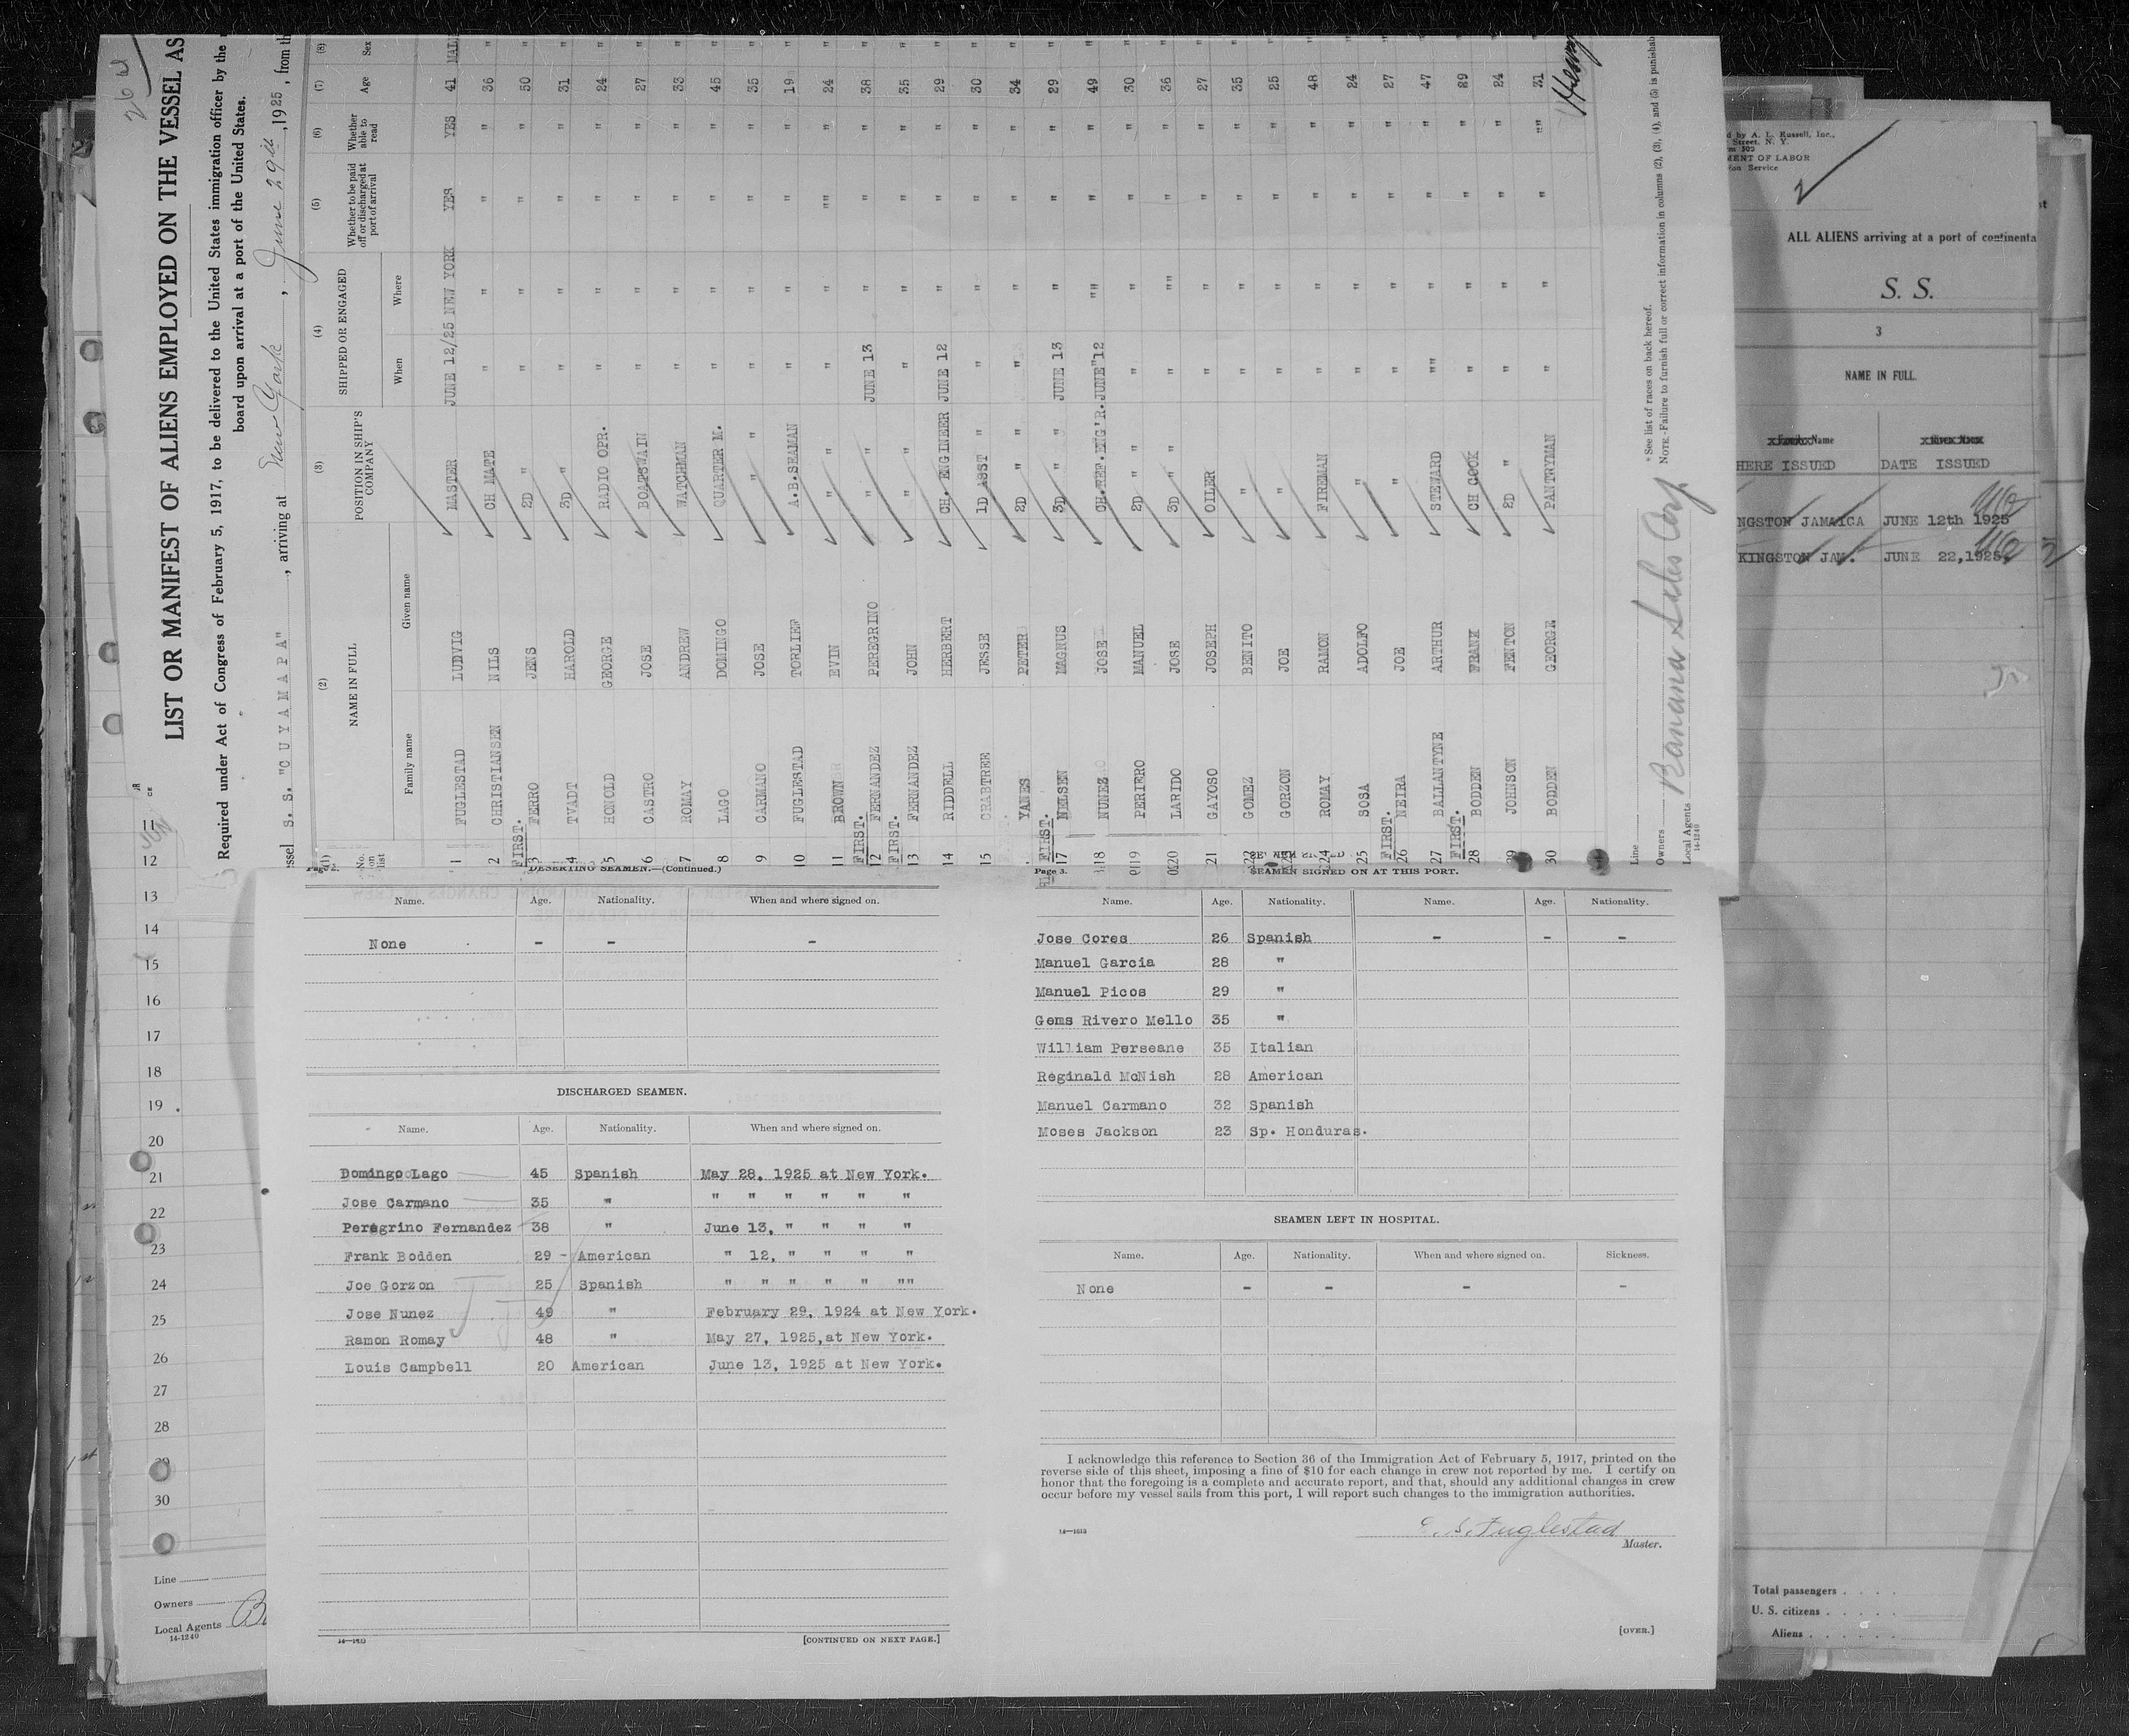 26
LIST OR MANIFEST OF ALIENS EMPLOYED ON THE VESSEL AS
Required under Act of Congress of February 5, 1917, to be delivered to the United States immigration officer by the
board upon arrival at a port of the United States.
ssel S. S. "CUYAMAPA", arriving at New York, June 29th, 1925, from th
(1) (2) (3) (4) (5) (6) (7) (8)
No. on list NAME IN FULL POSITION IN SHIP'S COMPANY SHIPPED OR ENGAGED Whether to be paid off or discharged at port of arrival Whether able to read Age Sex
Family name Given name When Where
1 FUGLESTAD LUDVIG MASTER JUNE 12/25 NEW YORK YES YES 41 MALE
2 CHRISTIANSEN NILS CH MATE " " " " 36 "
FIRST.
3 FERRO JENS 2D " " " " " 50 "
4 TVADT HAROLD 3D " " " " " 31 "
5 HONOLD GEORGE RADIO OPR. " " " " 24 "
6 CASTRO JOSE BOATSWAIN " " " " 27 "
7 ROMAY ANDREW WATCHMAN " " " " 33 "
8 LAGO DOMINGO QUARTER M. " " " " 45 "
9 CARMANO JOSE " " " " " 35 "
10 FUGLESTAD TORLIEF A.B.SEAMAN " " " " 19 "
11 BROWN EVIN " " " "" " 24 "
FIRST.
12 FERNANDEZ PEREGRINO " JUNE 13 " " " 38 "
FIRST.
13 FERNANDEZ JOHN " " " " " 35 "
14 RIDDELL HERBERT CH. ENGINEER JUNE 12 " " " 29 "
15 CRABTREE JESSE 1D ASST " " " " " 30 "
YANES PETER 2D " " " " " " 34 "
FIRST.
17 NELSEN MAGNUS 3D " JUNE 13 " " " 29 "
18 NUNEZ JOSE CH.REF.ENG'R. JUNE"12 "" " " 49 "
19 PERIERO MANUEL 2D " " " " " " 30 "
20 LARIDO JOSE 3D " " " "" " " 36 "
21 GAYOSO JOSEPH OILER " " " " 27 "
22 GOMEZ BENITO " " " " " 35 "
23 GORZON JOE " " " " " 25 "
24 ROMAY RAMON FIREMAN " " " " 48 "
25 SOSA ADOLFO " " " " " 24 "
FIRST.
26 NEIRA JOE " " " " " 27 "
27 BALLANTYNE ARTHUR STEWARD "" " " " 47 "
FIRST.
28 BODDEN FRANK CH COOK " " " " 29 "
29 JOHNSON FENTON 2D " " " " " 24 "
30 BODDEN GEORGE PANTRYMAN " " " "" 31 "
Line
Owners Banana Sales Corp
Local Agents
14-1240
* See list of races on back hereof.
NOTE.-Failure to furnish full or correct information in columns (2), (3), (4), and (5) is punishab
11
12
13
14
15
16
17
18
19
20
21
22
23
24
25
26
27
28
29
30
Line
Owners
Local Agents
14-1240
Page 2. DESERTING SEAMEN.—(Continued.)
Name. Age. Nationality. When and where signed on.
None - - -
DISCHARGED SEAMEN.
Name. Age. Nationality. When and where signed on.
Domingo Lago 45 Spanish May 28, 1925 at New York.
Jose Carmano 35 " " " " " " "
Peregrino Fernandez 38 " June 13, " " " "
Frank Bodden 29 - American " 12, " " " "
Joe Gorzon 25 Spanish " " " " " ""
Jose Nunez 49 " February 29, 1924 at New York.
Ramon Romay 48 " May 27, 1925,at New York.
Louis Campbell 20 American June 13, 1925 at New York.
[CONTINUED ON NEXT PAGE.]
Page 3. SEAMEN SIGNED ON AT THIS PORT.
Name. Age. Nationality. Name. Age. Nationality.
Jose Cores 26 Spanish - - -
Manuel Garcia 28 "
Manuel Picos 29 "
Gems Rivero Mello 35 "
William Perseane 35 Italian
Reginald McNish 28 American
Manuel Carmano 32 Spanish
Moses Jackson 23 Sp. Honduras.
SEAMEN LEFT IN HOSPITAL.
Name. Age. Nationality. When and where signed on. Sickness.
None - - - -
I acknowledge this reference to Section 36 of the Immigration Act of February 5, 1917, printed on the
reverse side of this sheet, imposing a fine of $10 for each change in crew not reported by me. I certify on
honor that the foregoing is a complete and accurate report, and that, should any additional changes in crew
occur before my vessel sails from this port, I will report such changes to the immigration authorities.
Fuglestad
Master.
[OVER.]
d by A. L. Russell, Inc.,
Street, N. Y.
rm 500
MENT OF LABOR
ion Service
ALL ALIENS arriving at a port of continenta
S. S.
3
NAME IN FULL
Name
HERE ISSUED DATE ISSUED
NGSTON JAMAICA JUNE 12th 1925
KINGSTON JAM. JUNE 22,1925.
Total passengers . . . .
U. S. citizens . . . . .
Aliens . . . . . .